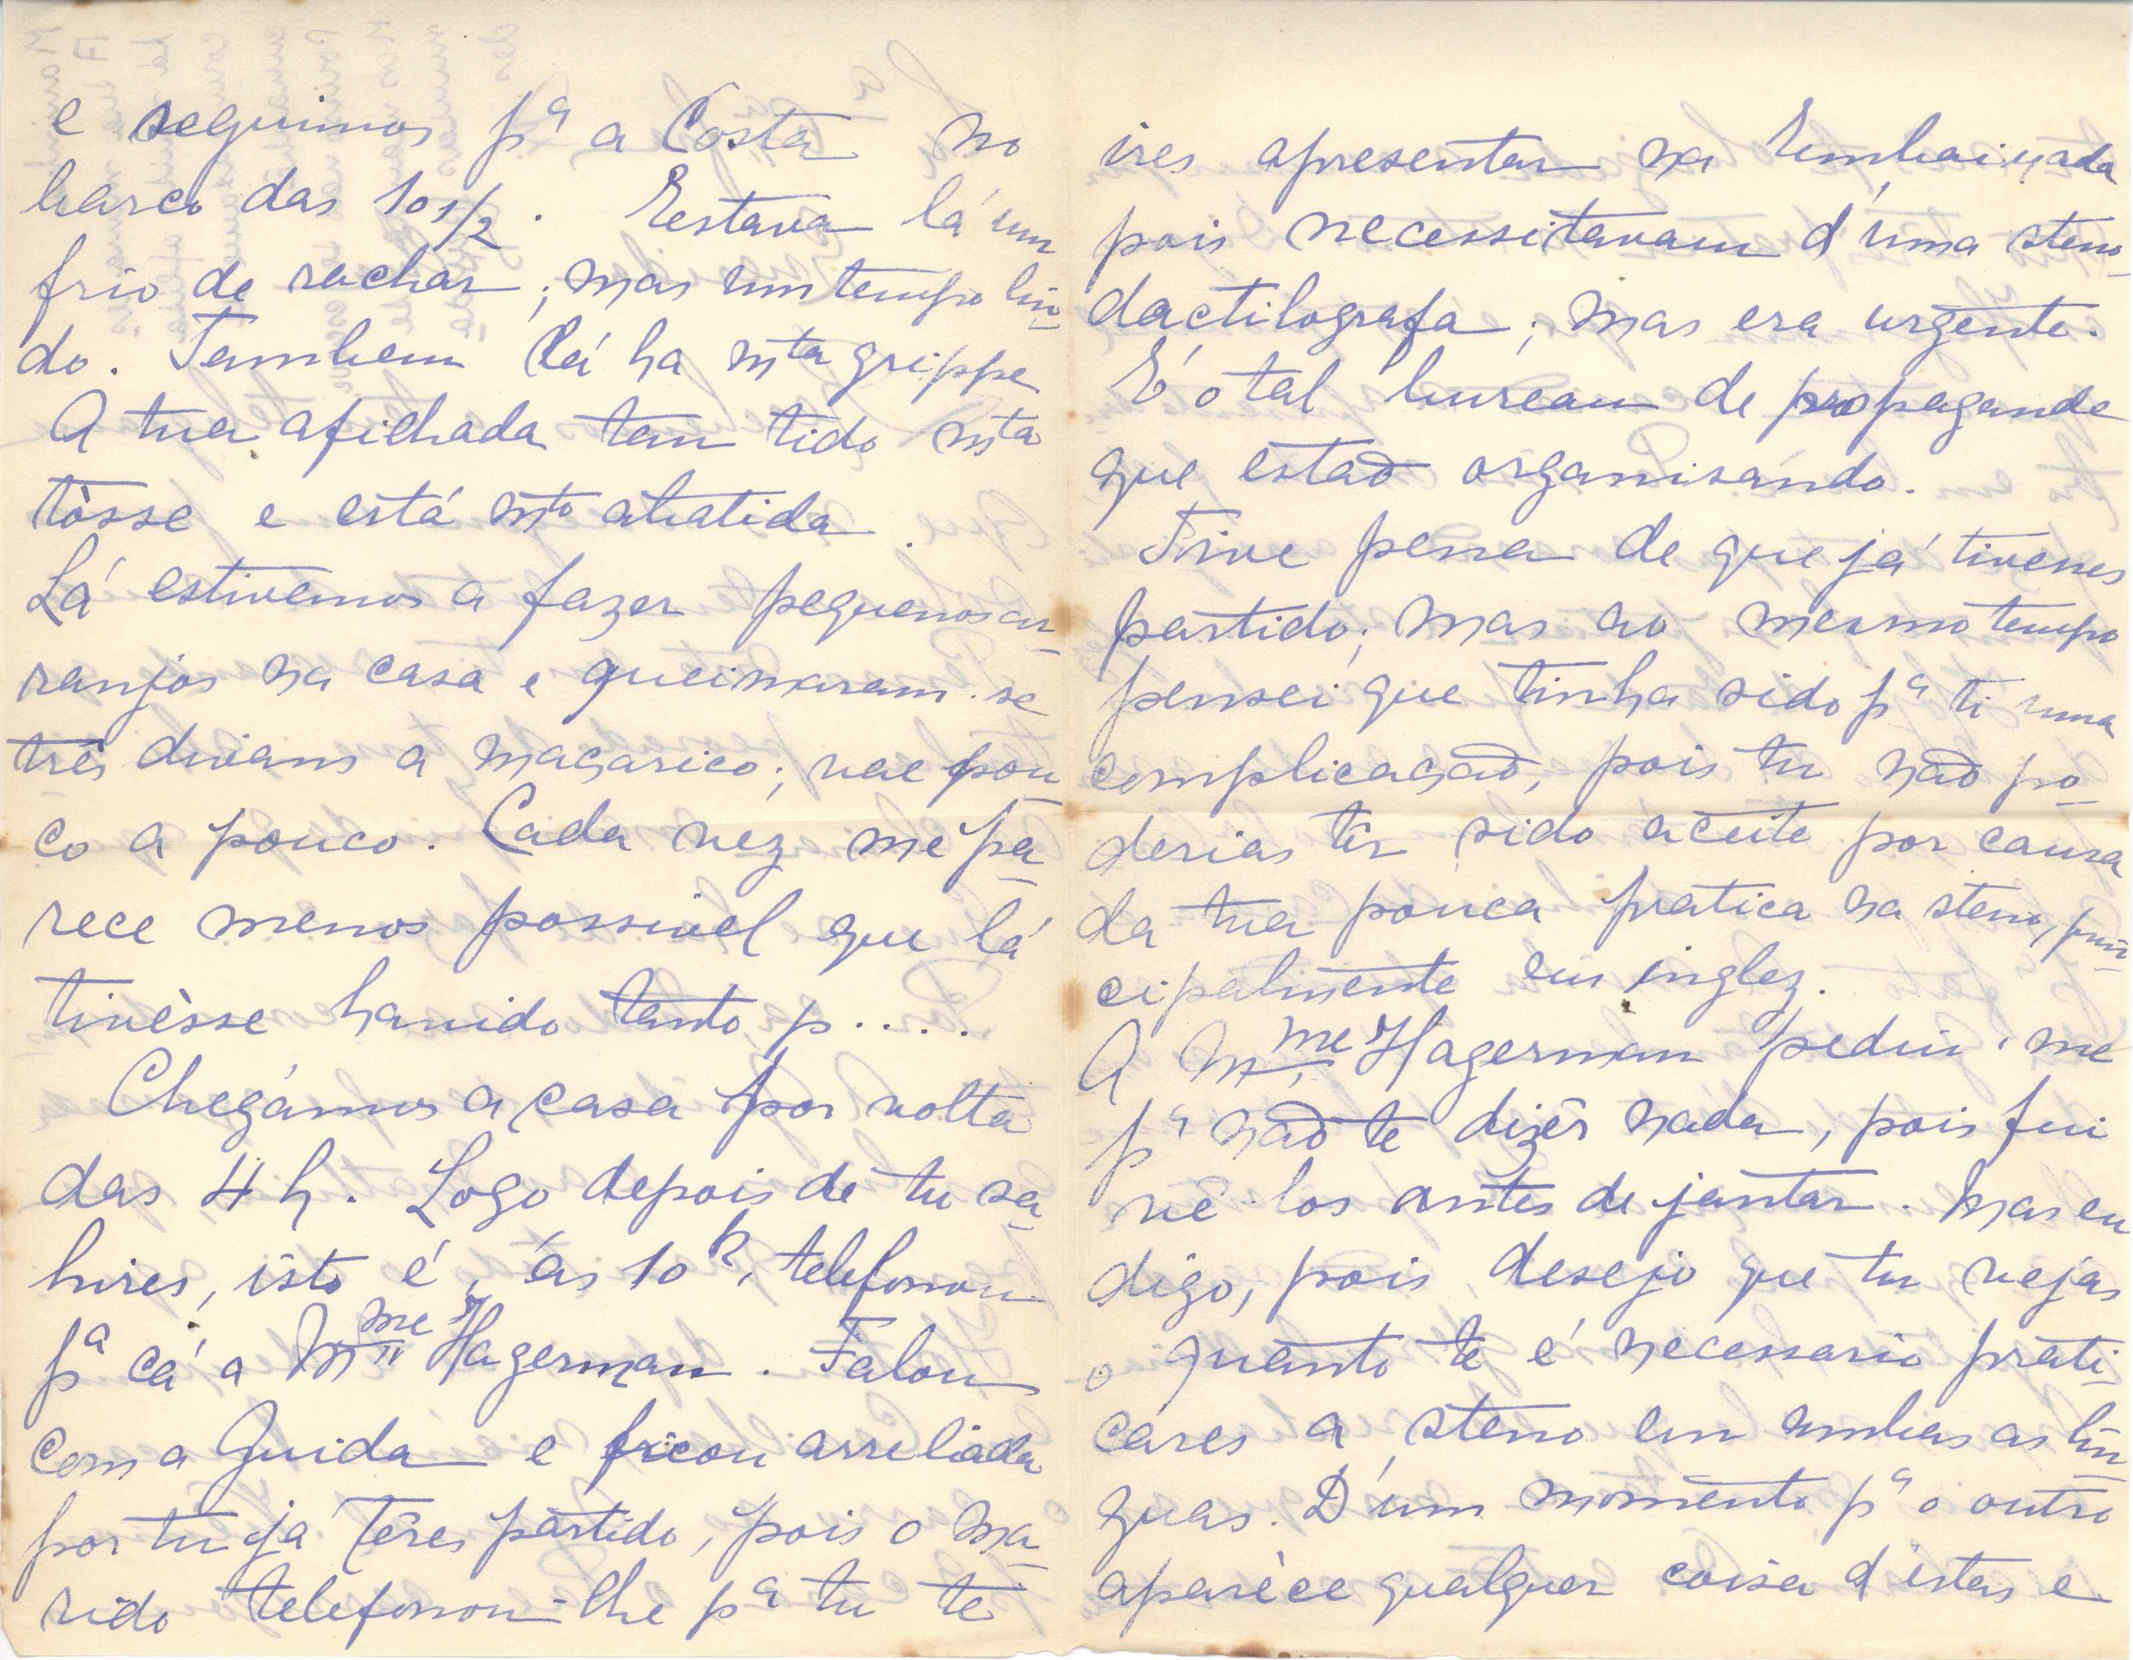 e seguimos pª a Costa no
barco das 10 1/2. Estava lá um
frio de rachar; mas um tempo lin-
do. Tambem lá ha mta grippe
A tua afilhada tem tido mta
tòsse e está mto abatida.
Lá estivemos a fazer pequenos ar-
ranjos na casa e queimaram-se
três divans a maçarico; vae pou-
co a pouco. Cada vez me pa-
rece menos possivel que lá
tivèsse havido tanto p....
Chegámos a casa por volta
das 4 h. Logo depois de tu sa-
hires, isto é, ás 10 h, telefonou
pª cá a Mme Hagerman. Falou
com a Guida e ficou arreliada
por tu já têres partido, pois o ma-
rido telefonou-lhe pª tu te
ires apresentar na Embaixada
pois necessitavam d'uma steno-
dactilografa; mas era urgente.
É o tal bureau de propagande
que estaõ organisando.
Tive pena de que já tivesses
partido; mas ao mesmo tempo
pensei que tinha sido pª ti uma
complicaçaõ, pois tu naõ po-
derias têr sido aceite por causa
da tua pouca pratica na steno, prin-
cipalmente em inglez.
A Mme Hagerman pediu-me
pª naõ te dizêr nada, pois fui
vê-los antes de jantar. Mas eu
digo, pois desejo que tu vejas
o quanto te é necessario prati-
cares a steno em ambas as lin-
guas. D'um momento pª o outro
aparèce qualquer coisa d'estas e